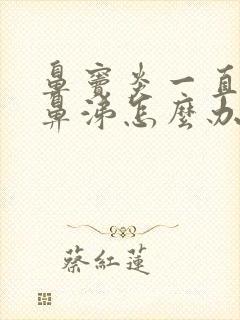 鼻竇炎一直
鼻涕怎麼办
蔡紅蓮